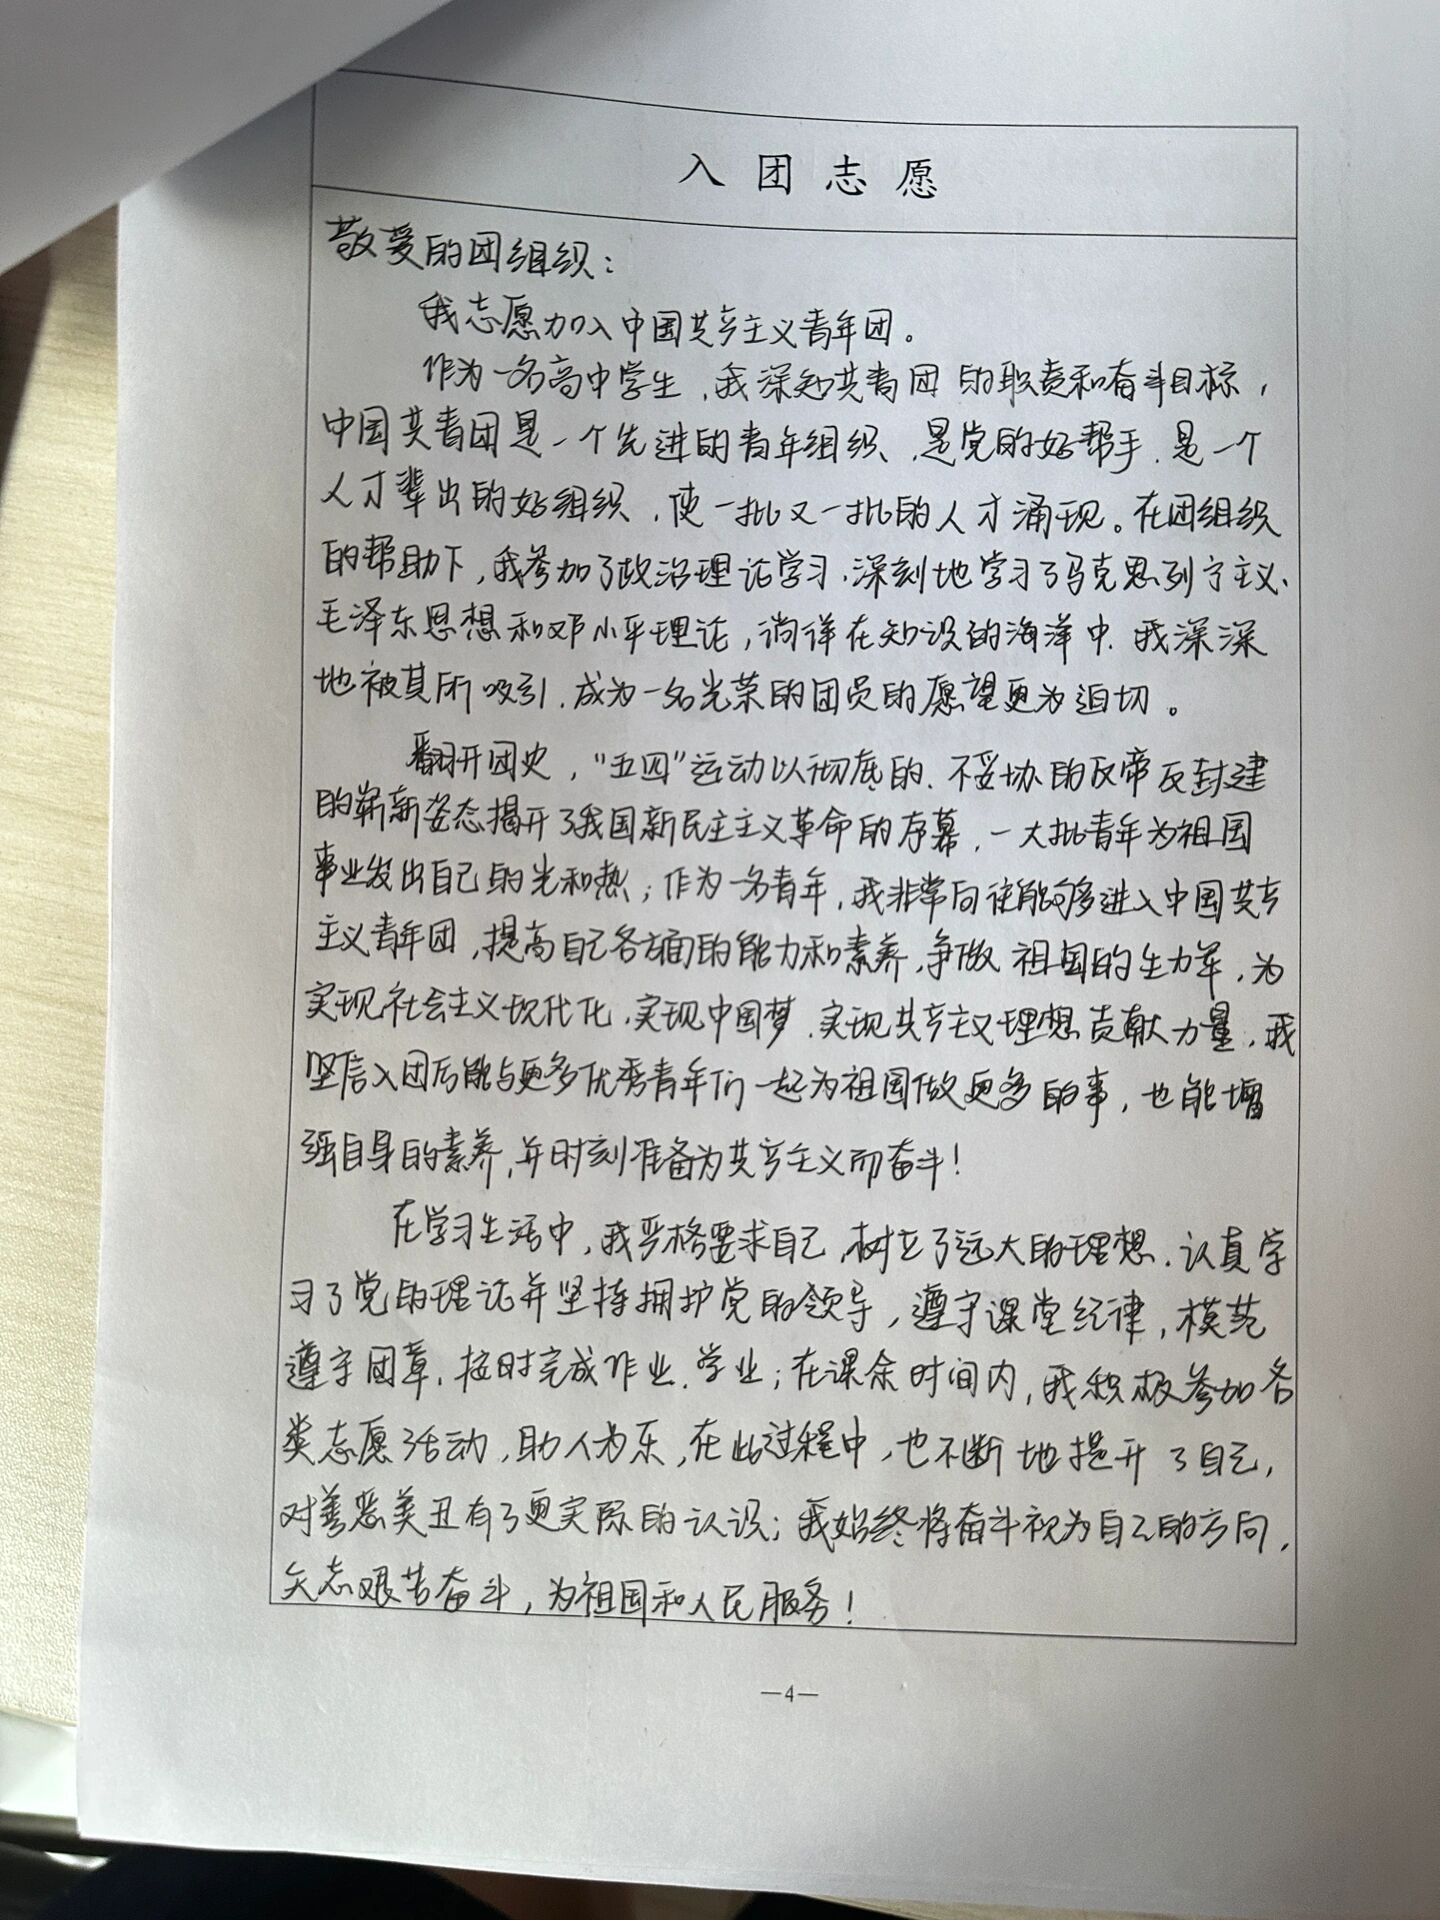 入团志愿
敬爱的团组织：
我志愿加入中国共产主义青年团。
作为一名高中学生，我深知共青团的职责和奋斗目标，
中国共青团是一个先进的青年组织、是党的好帮手、是一个
人才辈出的好组织，使一批又一批的人才涌现。在团组织
的帮助下，我参加了政治理论学习，深刻地学习了马克思列宁主义、
毛泽东思想和邓小平理论，徜徉在知识的海洋中，我深深
地被其所吸引，成为一名光荣的团员的愿望更为迫切。
翻开团史，“五四”运动以彻底的、不妥协的反帝反封建
的崭新姿态揭开了我国新民主主义革命的序幕，一大批青年为祖国
事业发出自己的光和热；作为一名青年，我非常向往能够进入中国共产
主义青年团，提高自己各方面的能力和素养，争做祖国的生力军，为
实现社会主义现代化，实现中国梦，实现共产主义理想贡献力量，我
坚信入团后能与更多优秀青年们一起为祖国做更多的事，也能增
强自身的素养，并时刻准备为共产主义而奋斗！
在学习生活中，我严格要求自己，树立了远大的理想，认真学
习了党的理论并坚持拥护党的领导，遵守课堂纪律，模范
遵守团章，按时完成作业、学业；在课余时间内，我积极参加各
类志愿活动，助人为乐，在此过程中，也不断地提升了自己，
对善恶美丑有了更实际的认识；我始终将奋斗视为自己的方向，
矢志艰苦奋斗，为祖国和人民服务！
—4—